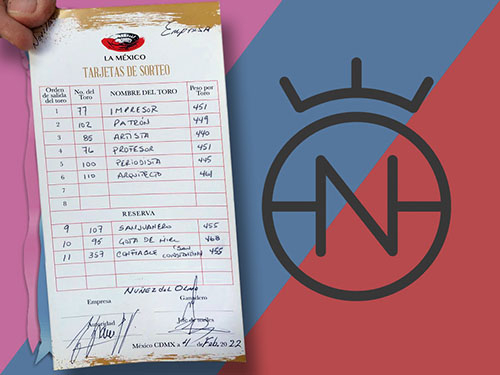 Empresa
LA MÉXICO
TARJETAS DE SORTEO
Orden de salida del toro No. del Toro NOMBRE DEL TORO Peso por Toro
1 77 IMPRESOR 451
2 102 PATRÓN 449
3 85 ARTISTA 440
4 76 PROFESOR 451
5 100 PERIODISTA 445
6 110 ARQUITECTO 461
7
8
RESERVA
9 107 SANJUANERO 455
10 95 GOTA DE MIEL 468
11 357 CONFIABLE (SAN CONSTANTINO) 455
NUÑEZ del Olmo
Empresa Ganadero
Autoridad Jefe de corrales
México CDMX a 4 de Feb 2022
N